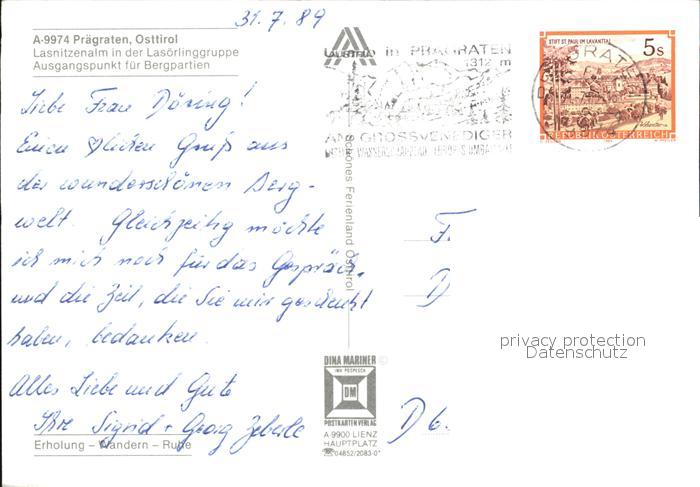 31.7.89
A-9974 Prägraten, Osttirol
Lasnitzenalm in der Lasörlinggruppe
Ausgangspunkt für Bergpartien
Liebe Frau Döring!
Einen ♡lichen Gruß aus
der wunderschönen Berg-
welt. Gleichzeitig möchte
ich mich noch für das Gespräch,
und die Zeit, die Sie mir geschenkt
haben, bedanken.
Alles Liebe und Gute
Ihre Sigrid + Georg Zeberle
Erholung – Wandern – Ruhe
Schönes Ferienland Osttirol
in PRÄGRATEN
1312 m
AM GROSSVENEDIGER
STIFT ST. PAUL IM LAVANTTAL
5 S
REPUBLIK ÖSTERREICH
F.
D
privacy protection
Datenschutz
DINA MARINER ©
DM
POSTKARTENVERLAG
A-9900 LIENZ
HAUPTPLATZ
☎04852/2083-0*
D 6.